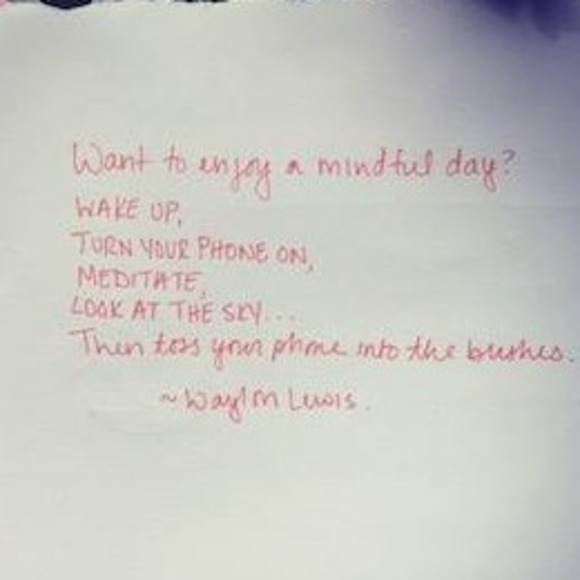 Want to enjoy a mindful day?
WAKE UP,
TURN YOUR PHONE ON,
MEDITATE,
LOOK AT THE SKY...
Then toss your phone into the bushes.
~Waylon Lewis.